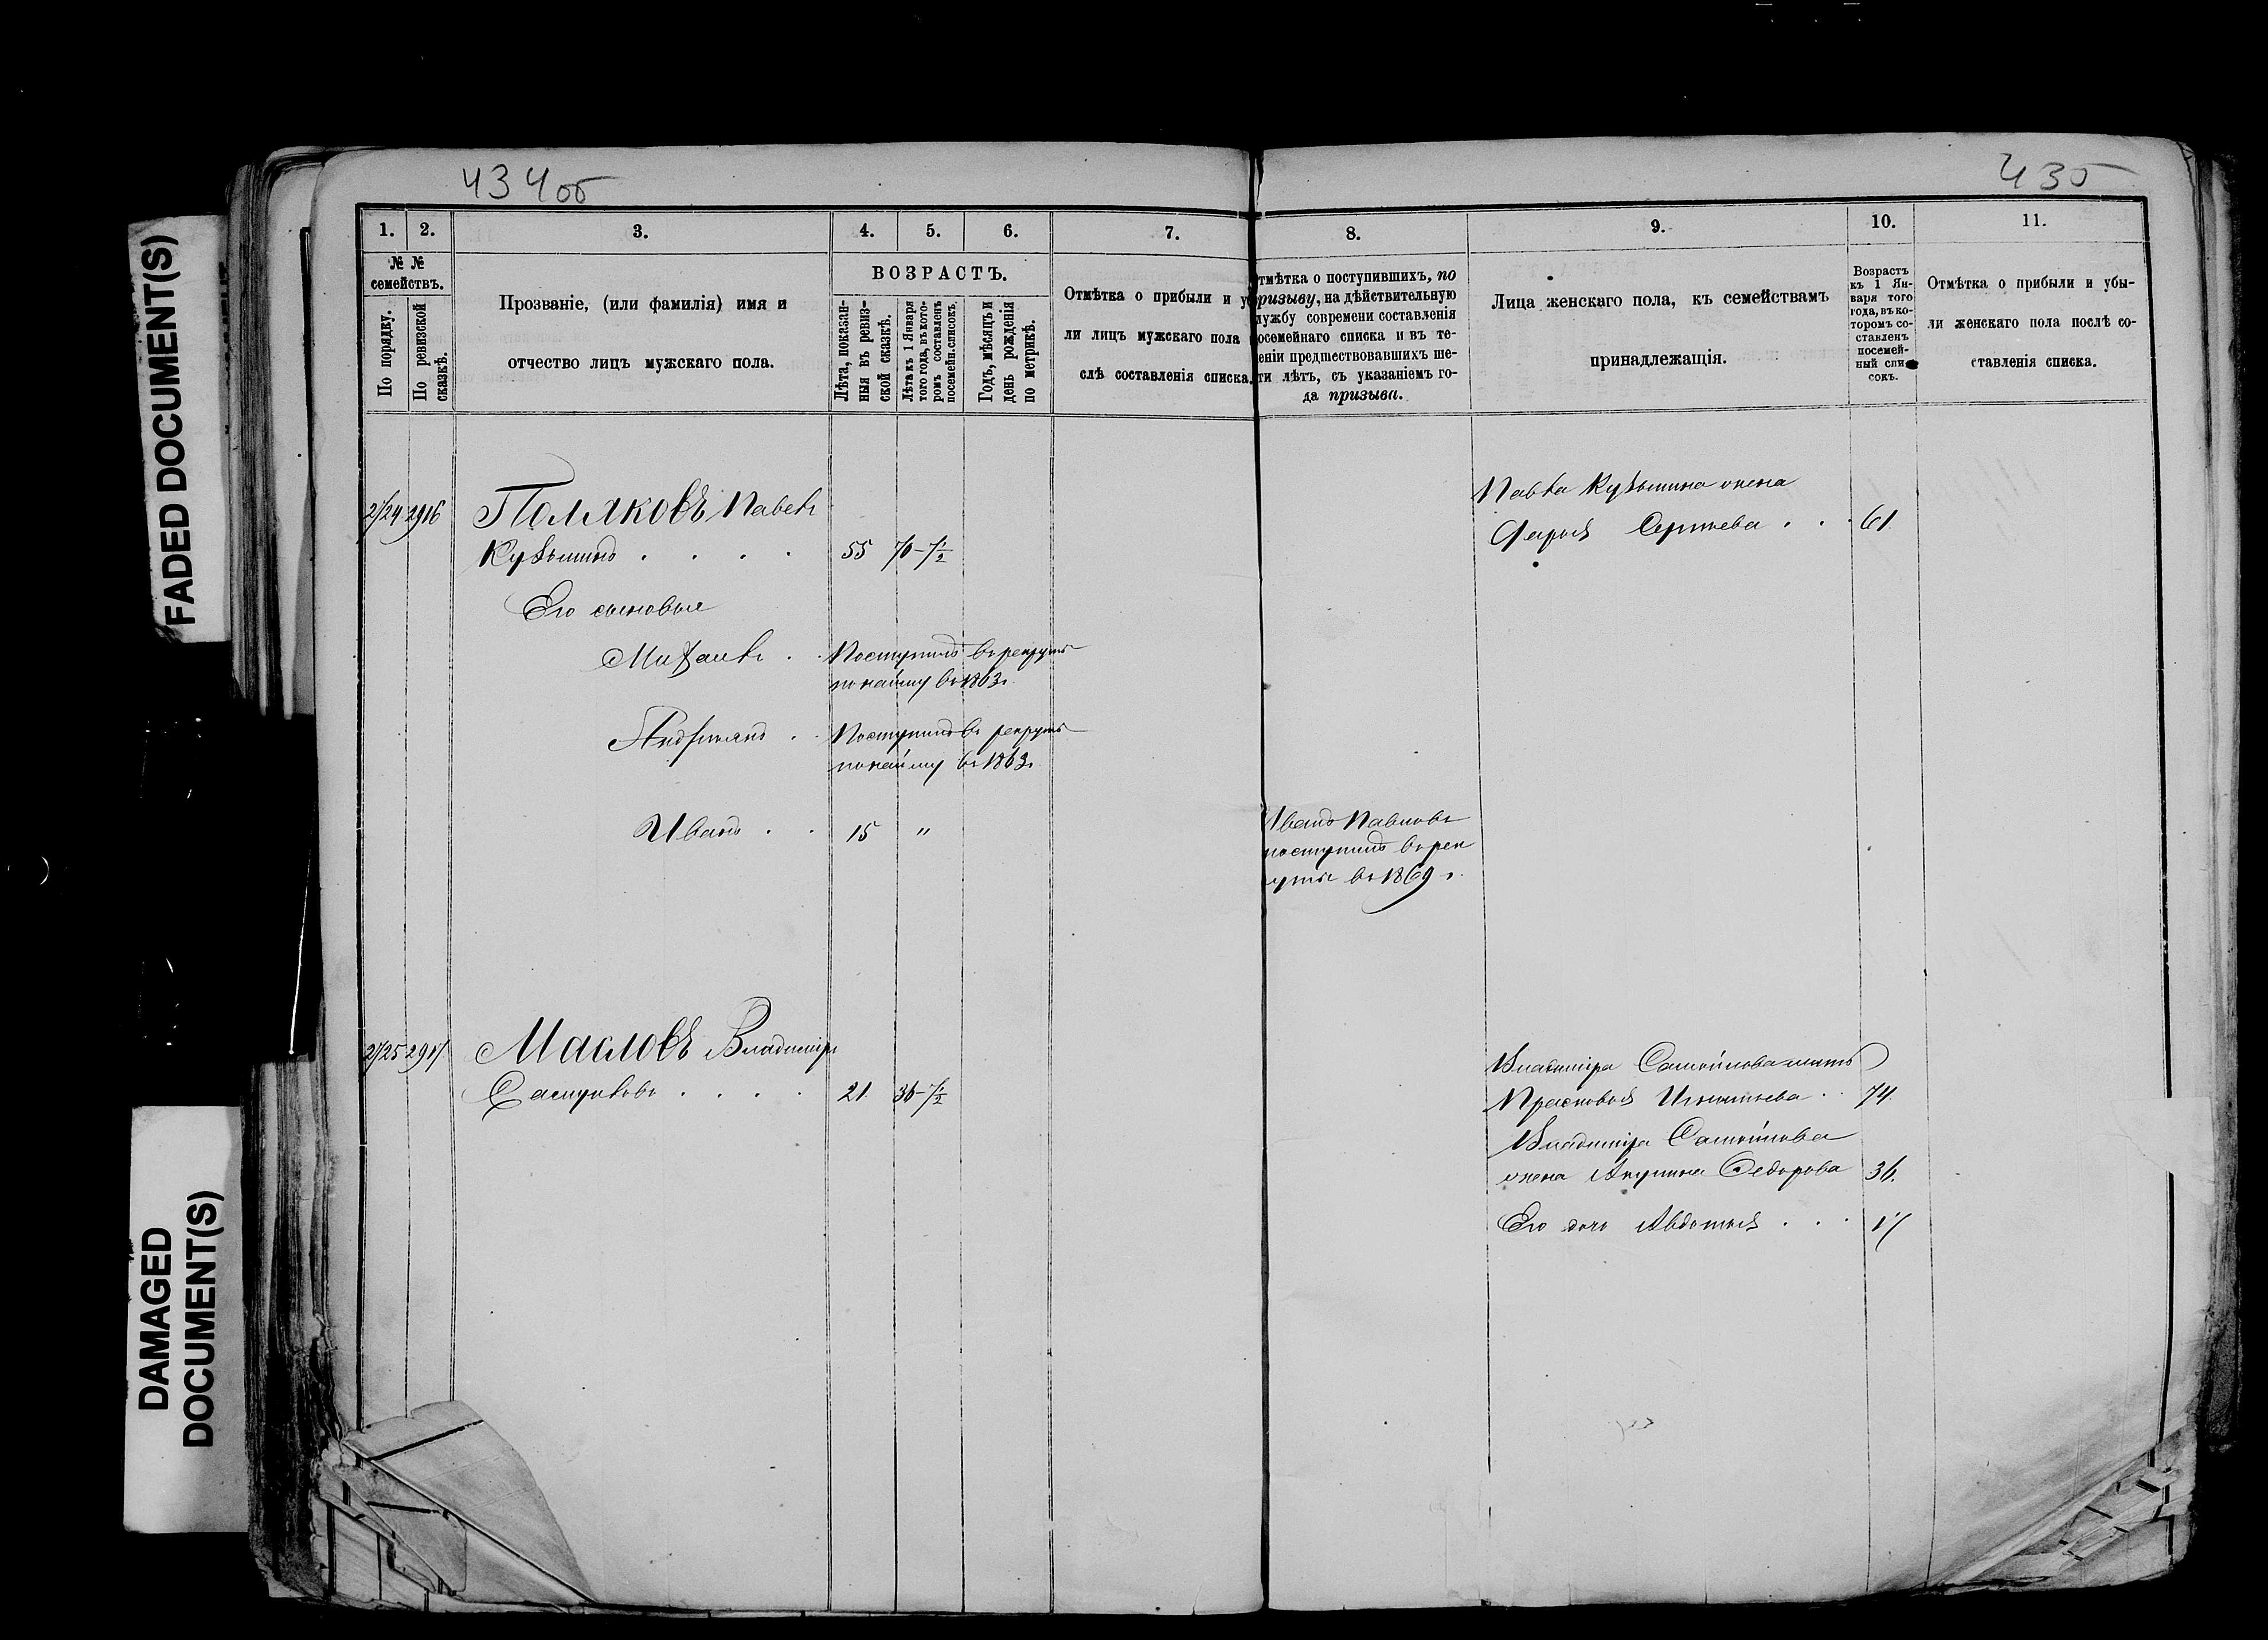 FADED DOCUMENT(S)
DAMAGED
DOCUMENT(S)
434об
435
1. 2. 3. 4. 5. 6. 7. 8. 9. 10. 11.
№ №
семействъ.
По порядку.
По ревизской
сказкѣ.
Прозваніе, (или фамилія) имя и
отчество лицъ мужскаго пола.
ВОЗРАСТЪ.
Лѣта, показан-
ныя въ ревиз-
ской сказкѣ.
Лѣта къ 1 Января
того года, въ кото-
ромъ составленъ
посемейн. списокъ.
Годъ, мѣсяцъ и
день рожденія
по метрикѣ.
Отмѣтка о прибыли и у
ли лицъ мужскаго пола
слѣ составленія списка.
тмѣтка о поступившихъ, по
ризыву, на дѣйствительную
лужбу современи составленія
осемейнаго списка и въ те-
еніи предшествовавшихъ ше-
ти лѣтъ, съ указаніемъ го-
да призыва.
Лица женскаго пола, къ семействамъ
принадлежащія.
Возрастъ
къ 1 Ян-
варя того
года, въ ко-
торомъ со-
ставленъ
посемей-
ный спи-
сокъ.
Отмѣтка о прибыли и убы-
ли женскаго пола послѣ со-
ставленія списка.
2724 2916 Поляковъ Павелъ
Кузьминъ . . . . 55 70-½
Его сыновья
Михаилъ . . Поступилъ въ рекруты
по найму въ 1863г.
Андріянъ . . Поступилъ въ рекруты
по найму въ 1863г.
Иванъ . . 15 "
Иванъ Павловъ
поступилъ въ рек
уты въ 1869 г.
Павла Кузьмина жена
Дарья Сергѣева . . 61.
2725 2917 Масловъ Владиміръ
Самуиловъ . . . . 21. 36-½
Владиміра Самойлова мать
Прасковья Игнатьева . . 74.
Владиміра Самойлова
жена Акулина Ѳедорова 36.
Его дочь Авдотья . . . 17